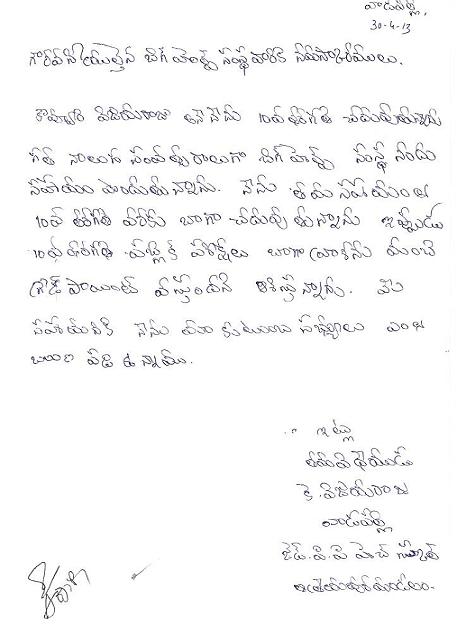 వాడపల్లి,
30-4-13
గౌరవనీయులైన బిగ్ హెల్ప్ సంస్థ వారికి నమస్కారములు.
కొవ్వూరి విజయరాజు అనే నేను 10వ తరగతి చదువుతున్నాను
గత నాలుగు సంవత్సరాలుగా బిగ్ హెల్ప్ సంస్థ నుండు
సహాయం పొందుతున్నాను. నేను తమ సహాయంతో
10వ తరగతి వరకు బాగా చదువుతున్నాను ఇప్పుడు
10వ తరగతి పబ్లిక్ పరీక్షలు బాగా వ్రాశాను మంచి
గ్రేడ్ పాయింట్ వస్తుందని ఆశిస్తున్నాను. మీ
సహాయానికి నేను మా కుటుంబ సభ్యులు ఎంతో
ఋణ పడి ఉన్నాము.
ఇట్లు
తమ విధేయుడు
కె. విజయరాజు
వాడపల్లి
జెడ్. పి. పి హెచ్ స్కూల్
ఆత్రేయపురం మండలం.